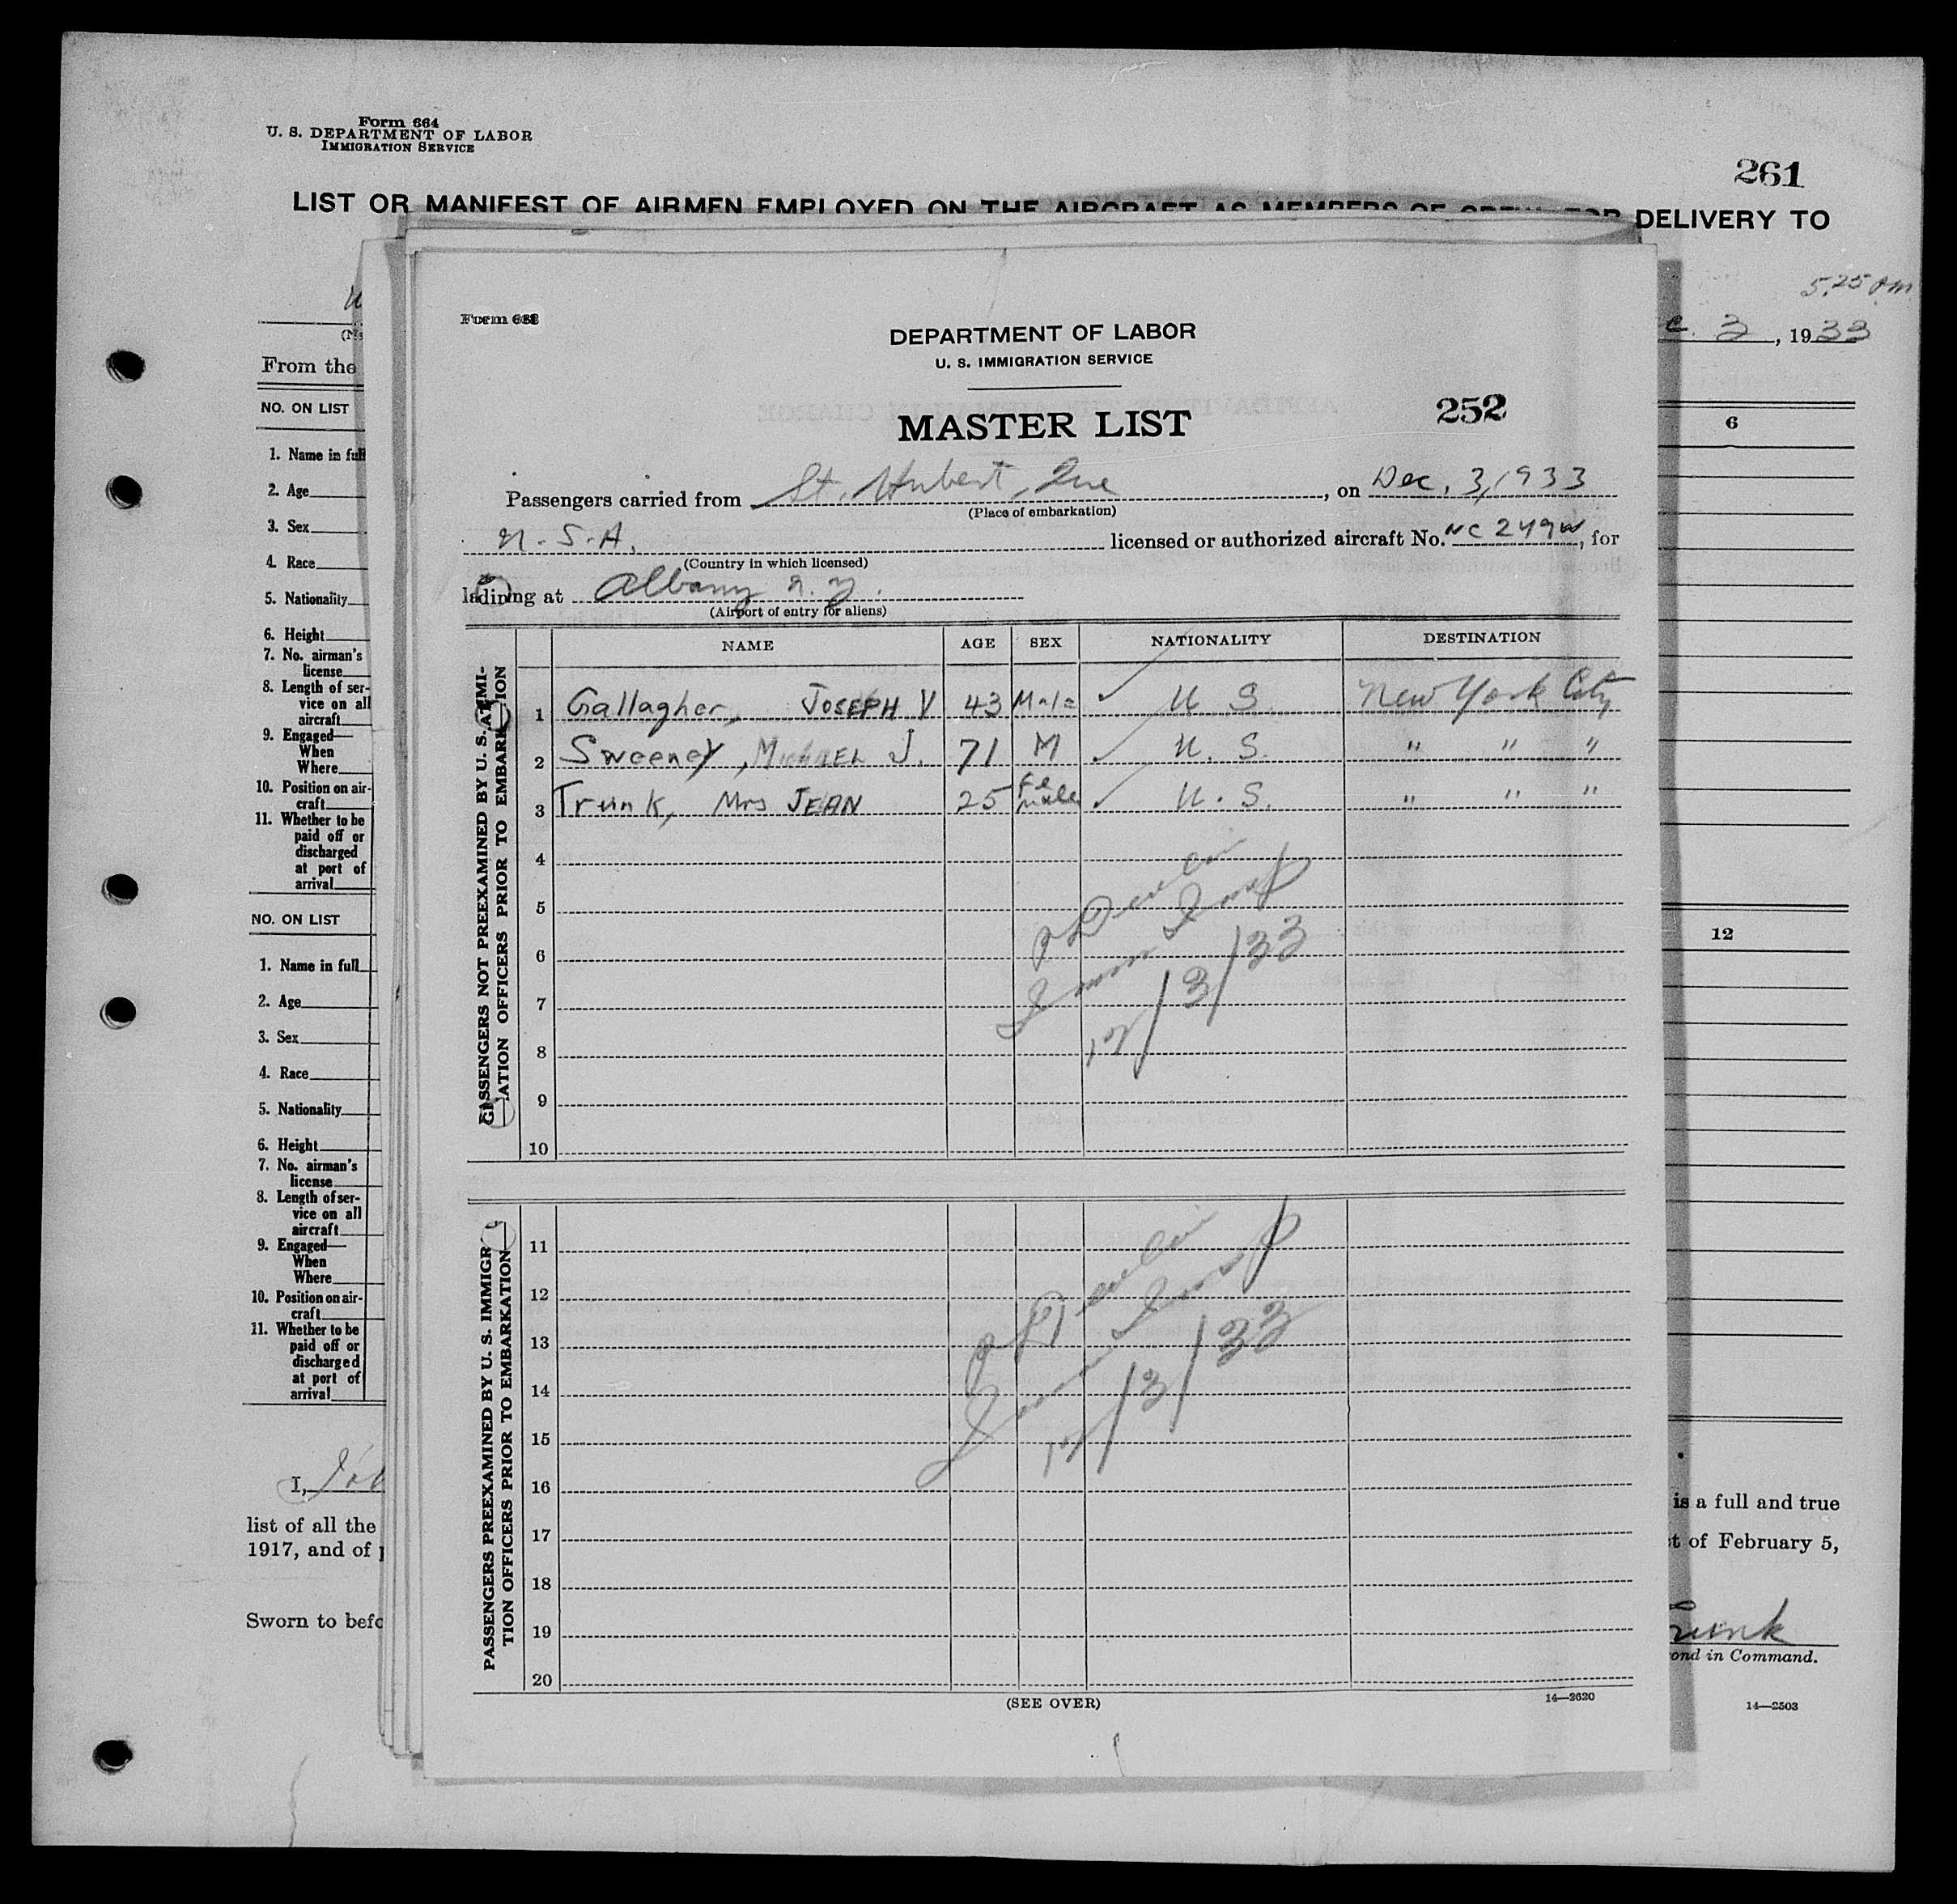 Form 664
U. S. DEPARTMENT OF LABOR
IMMIGRATION SERVICE
261
LIST OR MANIFEST OF AIRMEN EMPLOYED ON THE AIRCRAFT AS MEMBERS OF CREW FOR DELIVERY TO
5.25 pm
3, 1933
From the
NO. ON LIST
6
1. Name in full
2. Age
3. Sex
4. Race
5. Nationality
6. Height
7. No. airman's
license
8. Length of ser-
vice on all
aircraft
9. Engaged—
When
Where
10. Position on air-
craft
11. Whether to be
paid off or
discharged
at port of
arrival
NO. ON LIST
12
1. Name in full
2. Age
3. Sex
4. Race
5. Nationality
6. Height
7. No. airman's
license
8. Length of ser-
vice on all
aircraft
9. Engaged—
When
Where
10. Position on air-
craft
11. Whether to be
paid off or
discharged
at port of
arrival
I,
is a full and true
list of all the
1917, and of
of February 5,
Sworn to befo
ond in Command.
14—2503
DEPARTMENT OF LABOR
U. S. IMMIGRATION SERVICE
MASTER LIST
252
Passengers carried from St. Hubert, Que, on Dec. 3, 1933
(Place of embarkation)
U.S.A. licensed or authorized aircraft No. NC 249W, for
(Country in which licensed)
at Albany N.Y.
(Airport of entry for aliens)
NAME AGE SEX NATIONALITY DESTINATION
PASSENGERS NOT PREEXAMINED BY U. S. IMMI-
GRATION OFFICERS PRIOR TO EMBARKATION
1 Gallagher, JOSEPH V 43 Male ✓ U S. New York City
2 Sweeney, MICHAEL J. 71 M ✓ U. S. " " "
3 Trunk, Mrs JEAN 25 Female ✓ U. S. " " "
4
5
6
7
8
9
10
P Devlin
Imm Insp
12/3/33
PASSENGERS PREEXAMINED BY U. S. IMMIGRA-
TION OFFICERS PRIOR TO EMBARKATION
11
12
13
14
15
16
17
18
19
20
P Devlin
Imm Insp
12/3/33
(SEE OVER)
14—2620